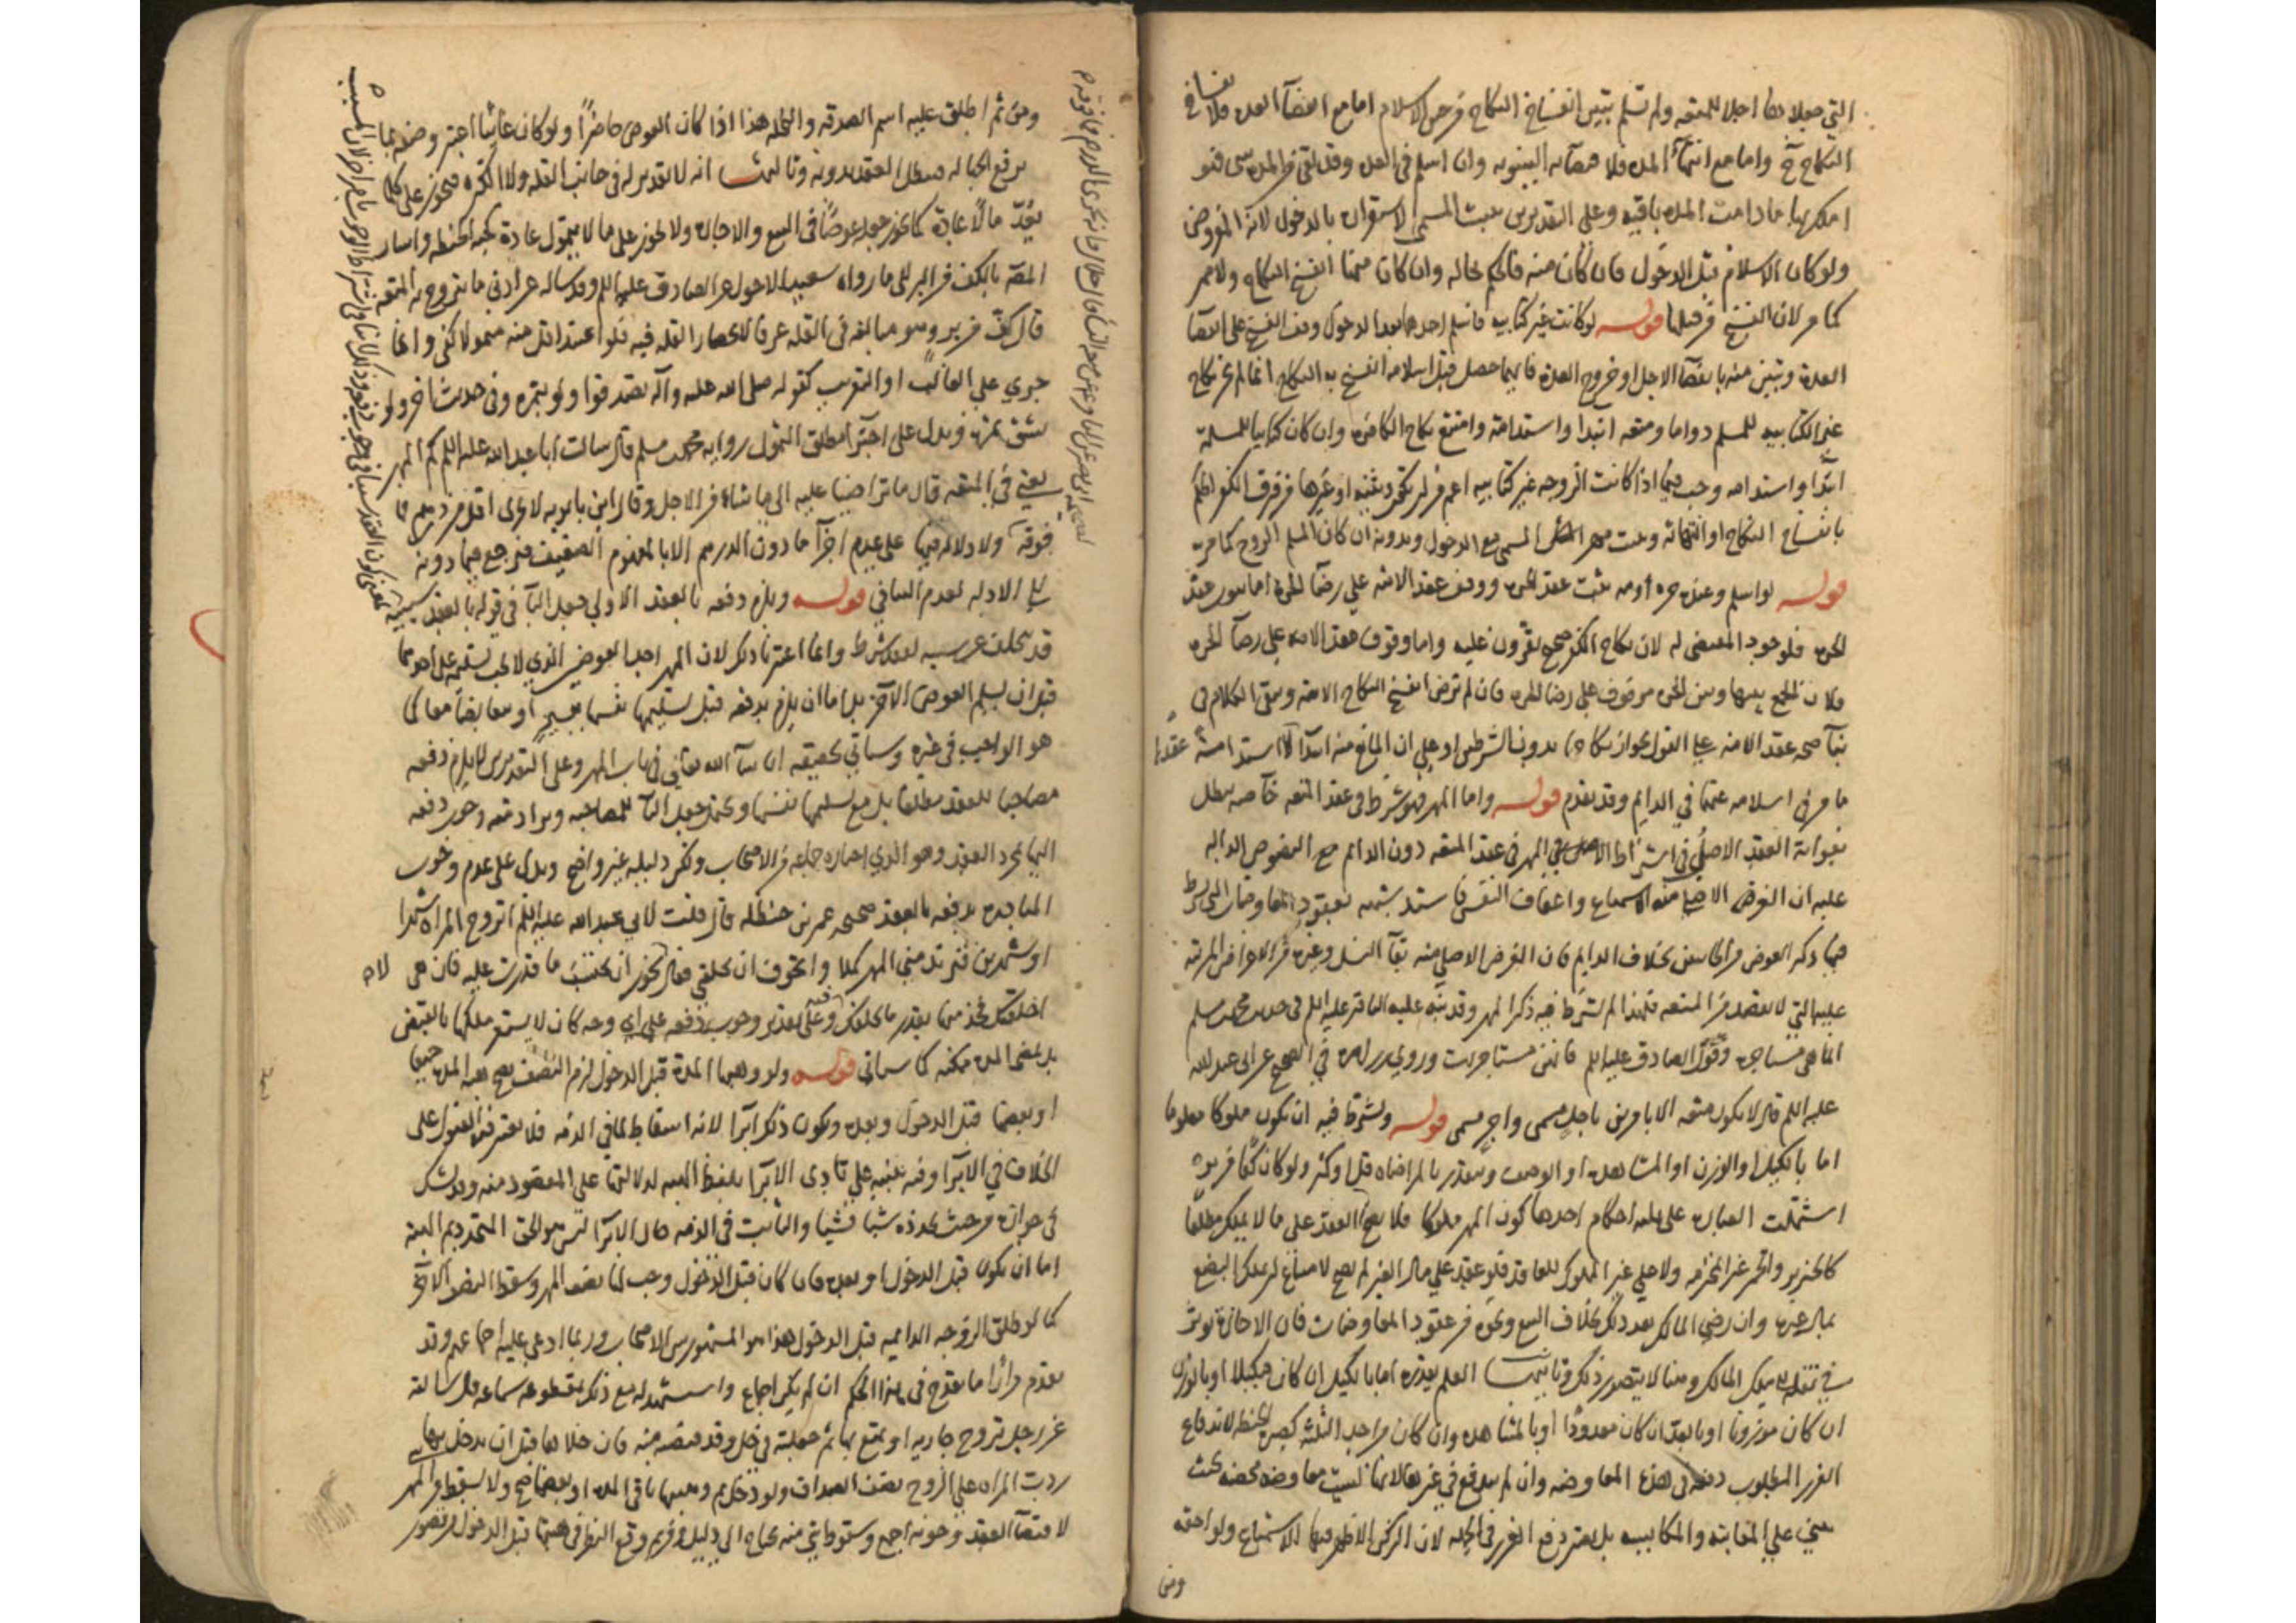 التي جعلاها اجلا للمتعه ولم تسلم تبين انفساخ النكاح من حين الاسلام اما مع انقضآ العده فلانفساخ
النكاح ح واما مع انتهآء المده فلاقتضآئه البينونه وان اسلم في العده وقد بقي من المده شي فهو
املك بها ما دامت المده باقيه وعلى التقديرين يثبت المسمى لاستقراره بالدخول لانه المفروض
ولو كان الاسلام قبل الدخول فان كان منه فالحكم بحاله وان كان منها انفسخ النكاح ولا مهر
كما مر لان الفسخ من قبلها قوله لو كانت غير كتابيه فاسلم احدهما بعد الدخول وقف الفسخ على انقضآ
العدة وتبين منه بانقضآ الاجل او خروج العدة فايهما حصل قبل اسلامه انفسخ به النكاح انما لم يجز نكاح
غير الكتابيه للمسلم دواما ومتعه ابتدا واستدامة وامتنع نكاح الكافر وان كان كتابيا للمسلمة
ابتدا واستدامه وجب فيما اذا كانت الزوجه غير كتابيه اعم من ان تكون وثنيه او غيرها من فرق الكفر الحكم
بانفساخ النكاح او انتهائه ويثبت المسمى مع الدخول وبدونه ان كان المسلم الزوج كما مر
قوله لو اسلم وعنده حره وامه ثبت عقد الحره ووقف عقد الامه علي رضآ الحره اما ثبوت عقد
الحره فلوجود المقتضي له لان نكاح الكفر صحيح يقرون عليه واما وقوف عقد الامه علي رضآ الحره
فلان الجمع بينها وبين الحره موقوف علي رضا الحره فان لم ترض انفسخ النكاح الامه وسبق الكلام في
بنآ صحه عقد الامه علي القول بجواز نكاحها بدون الشرطين او علي ان المانع منه ابتدآ لا استدامته عقدا
ما مر في اسلامه عنهما في الدايم وقد تقدم قوله واما المهر فهو شرط في عقد المتعه خاصه يبطل
بفواته العقد الاصل في اشتراط المهر في عقد المتعه دون الدائم مع النصوص الداله
عليه ان الغرض الاصلي منه الاستمتاع واعفاف النفس فاستد شبهه بعقود المعاوضات التي يشترط
فيها ذكر العوض من الجانبين بخلاف الدايم فان الغرض الاصلي منه بقآ النسل وغيره من الاغراض المرتبه
عليه التي لا تقصد من المتعه فلهذا لم يشترط فيه ذكر المهر وقد نبه عليه الباقر عليه السلم في حديث محمد بن مسلم
انما هي مستاجره وقول الصادق عليه السلم فانهن مستاجرات وروي زراره في الصحيح عن ابي عبد الله
عليه السلم قال لا يكون متعه الا بامرين باجل مسمى واجر مسمى قوله ويشترط فيه ان يكون مملوكا معلوما
اما بالكيل او الوزن او المشاهده او الوصف ويتقدر بالمراضاه قل او كثر ولو كان كفا من بر
اشتملت العباره على ثلثه احكام احدها كون المهر مملوكا فلا يصح العقد على ما لا يملك مطلقا
كالخنزير والخمر غير المحترمه ولا علي غير المملوك للعاقد فلو عقد علي مال الغير لم يصح لامتناع ان يملك البضع
بمال غيره وان رضي المالك بعد ذلك بخلاف البيع ونحوه من عقود المعاوضات فان الاجازة تؤثر
في نقله الي ملك المالك وهنا لا يتصور ذلك وثانيها العلم بقدره اما بالكيل ان كان مكيلا او بالوزن
ان كان موزونا او بالعد ان كان معدودا او بالمشاهده وان كان من احد الثلثه كصبره الحنطه لاندفاع
الغرر المطلوب دفعه في هذه المعاوضه وان لم يندفع في غيرها لانها ليست معاوضه محضه بحيث
يبني علي المغابنه والمكايسه بل يعتبر دفع الغرر في الجمله لان الركن الاظهر فيها الاستمتاع ولواحقه
ومن
ومن ثم اطلق عليه اسم الصدقه والنحله هذا اذا كان العوض حاضرا ولو كان غائبا اعتبر وصفه بما
يرفع الجهاله فيبطل العقد بدونه وثالثها انه لا تقدير له في جانب القله ولا الكثره فيجوز على كل ما
يعد مالا عادة كما يجوز جعله عوضا في البيع والاجاره ولا يجوز على ما لا يتمول عادة كحبه الحنطه واشار
المص بالكف من البر الى ما رواه سعيد الاحول عن الصادق عليه السلم وقد ساله عن ادنى ما يتزوج به المتعه
قال كف من بر وهو مبالغه في القله عرفا لانحصار القله فيه فلو اعتد اقل منه متمولا كفى وانما
جري علي الغالب او التقريب كقوله صلى الله عليه وآله تصدقوا ولو بتمرة وفي حديث اخر ولو
بشق تمره ويدل على اجتزآء مطلق التمول روايه محمد بن مسلم قال سالت ابا عبد الله عليه السلم كم المهر
يعني في المتعه قال ما تراضيا عليه الى ما شاء من الاجل وقال ابن بابويه لا يجزى اقل من درهم فما
فوقه ولا دلاله فيها على عدم اجزآ ما دون الدرهم الا بالمفهوم الضعيف فيرجع فيما دونه
الي الادله لعدم المنافي قوله ويلزم دفعه بالعقد الاولى جعل البآ في قوله بالعقد سببيه
قد يتخلف عن سببه لفقد شرط وانما اعتبرنا ذلك لان المهر احد العوضين الذي لا يجب تسليمه على احدهما
قبل ان يسلم العوض الآخر بل اما ان يلزم بدفعه قبل تسليمها نفسها بيسير او يتقابضا معا كما
هو الواجب في غيره وسياتي تحقيقه ان شآ الله تعالي في باب المهر وعلى التقديرين لا يلزم دفعه
مصاحبا للعقد مطلقا بل مع تسليمها نفسها ويحتمل جعل البآ للمصاحبه ويراد منه وجوب دفعه
اليها بمجرد العقد وهو الذي اختاره جماعه من الاصحاب ولكن دليله غير واضح ويدل على عدم وجوب
المبادره بدفعه بالعقد صحيحه عمر بن حنظله قال قلت لابي عبد الله عليه السلم اتزوج المراه شهرا
او شهرين فتريد مني المهر كملا واتخوف ان تخلفني فقال يجوز ان تحبس ما قدرت عليه فان هي
اخلفتك فخذ منها بقدر ما تخلفك وعلى تقدير وجوب دفعه علي اي وجه كان لا يستقر ملكها بالقبض
بل بمضي المده ممكنه كما سياتي قوله ولو وهبها المدة قبل الدخول لزم النصف يصح هبه المده جميعا
او بعضها قبل الدخول وبعده ويكون ذلك ابرآا لانه اسقاط لما في الذمه فلا يعتبر فيه القبول على
الخلاف في الابرآ وفيه تنبيه علي تادى الابرآ بلفظ الهبه لدلالتها على المقصود منه وقد يشكل
في جوازه من حيث تجدده شيا فشيا والثابت في الذمه حال الابرآ ليس هو الحق المتجدد ثم الهبه
اما ان يكون قبل الدخول او بعده فان كان قبل الدخول وجب لها نصف المهر وسقط النصف الآخر
كما لو طلق الزوجه الداميه قبل الدخول هذا هو المشهور بين الاصحاب وربما ادعي عليه اجماعهم وقد
تقدم مرارا ما يقدح في هذا الحكم ان لم يكن اجماع واستشهد له مع ذلك بمقطوعه سماعه قال سالته
عن رجل تزوج جاريه او تمتع بها ثم جعلته في حل وقد قبضته منه فان خلاها قبل ان يدخل بها
ردت المراه علي الزوج نصف الصداق ولو دخل بها ثم وهبها باقي المده او بعضها صح ولا يسقط من المهر
لاقتضآ العقد وجوبه اجمع وسقوط شي منه يحتاج الى دليل ومن ثم وقع النظر في هبتها قبل الدخول من تصور